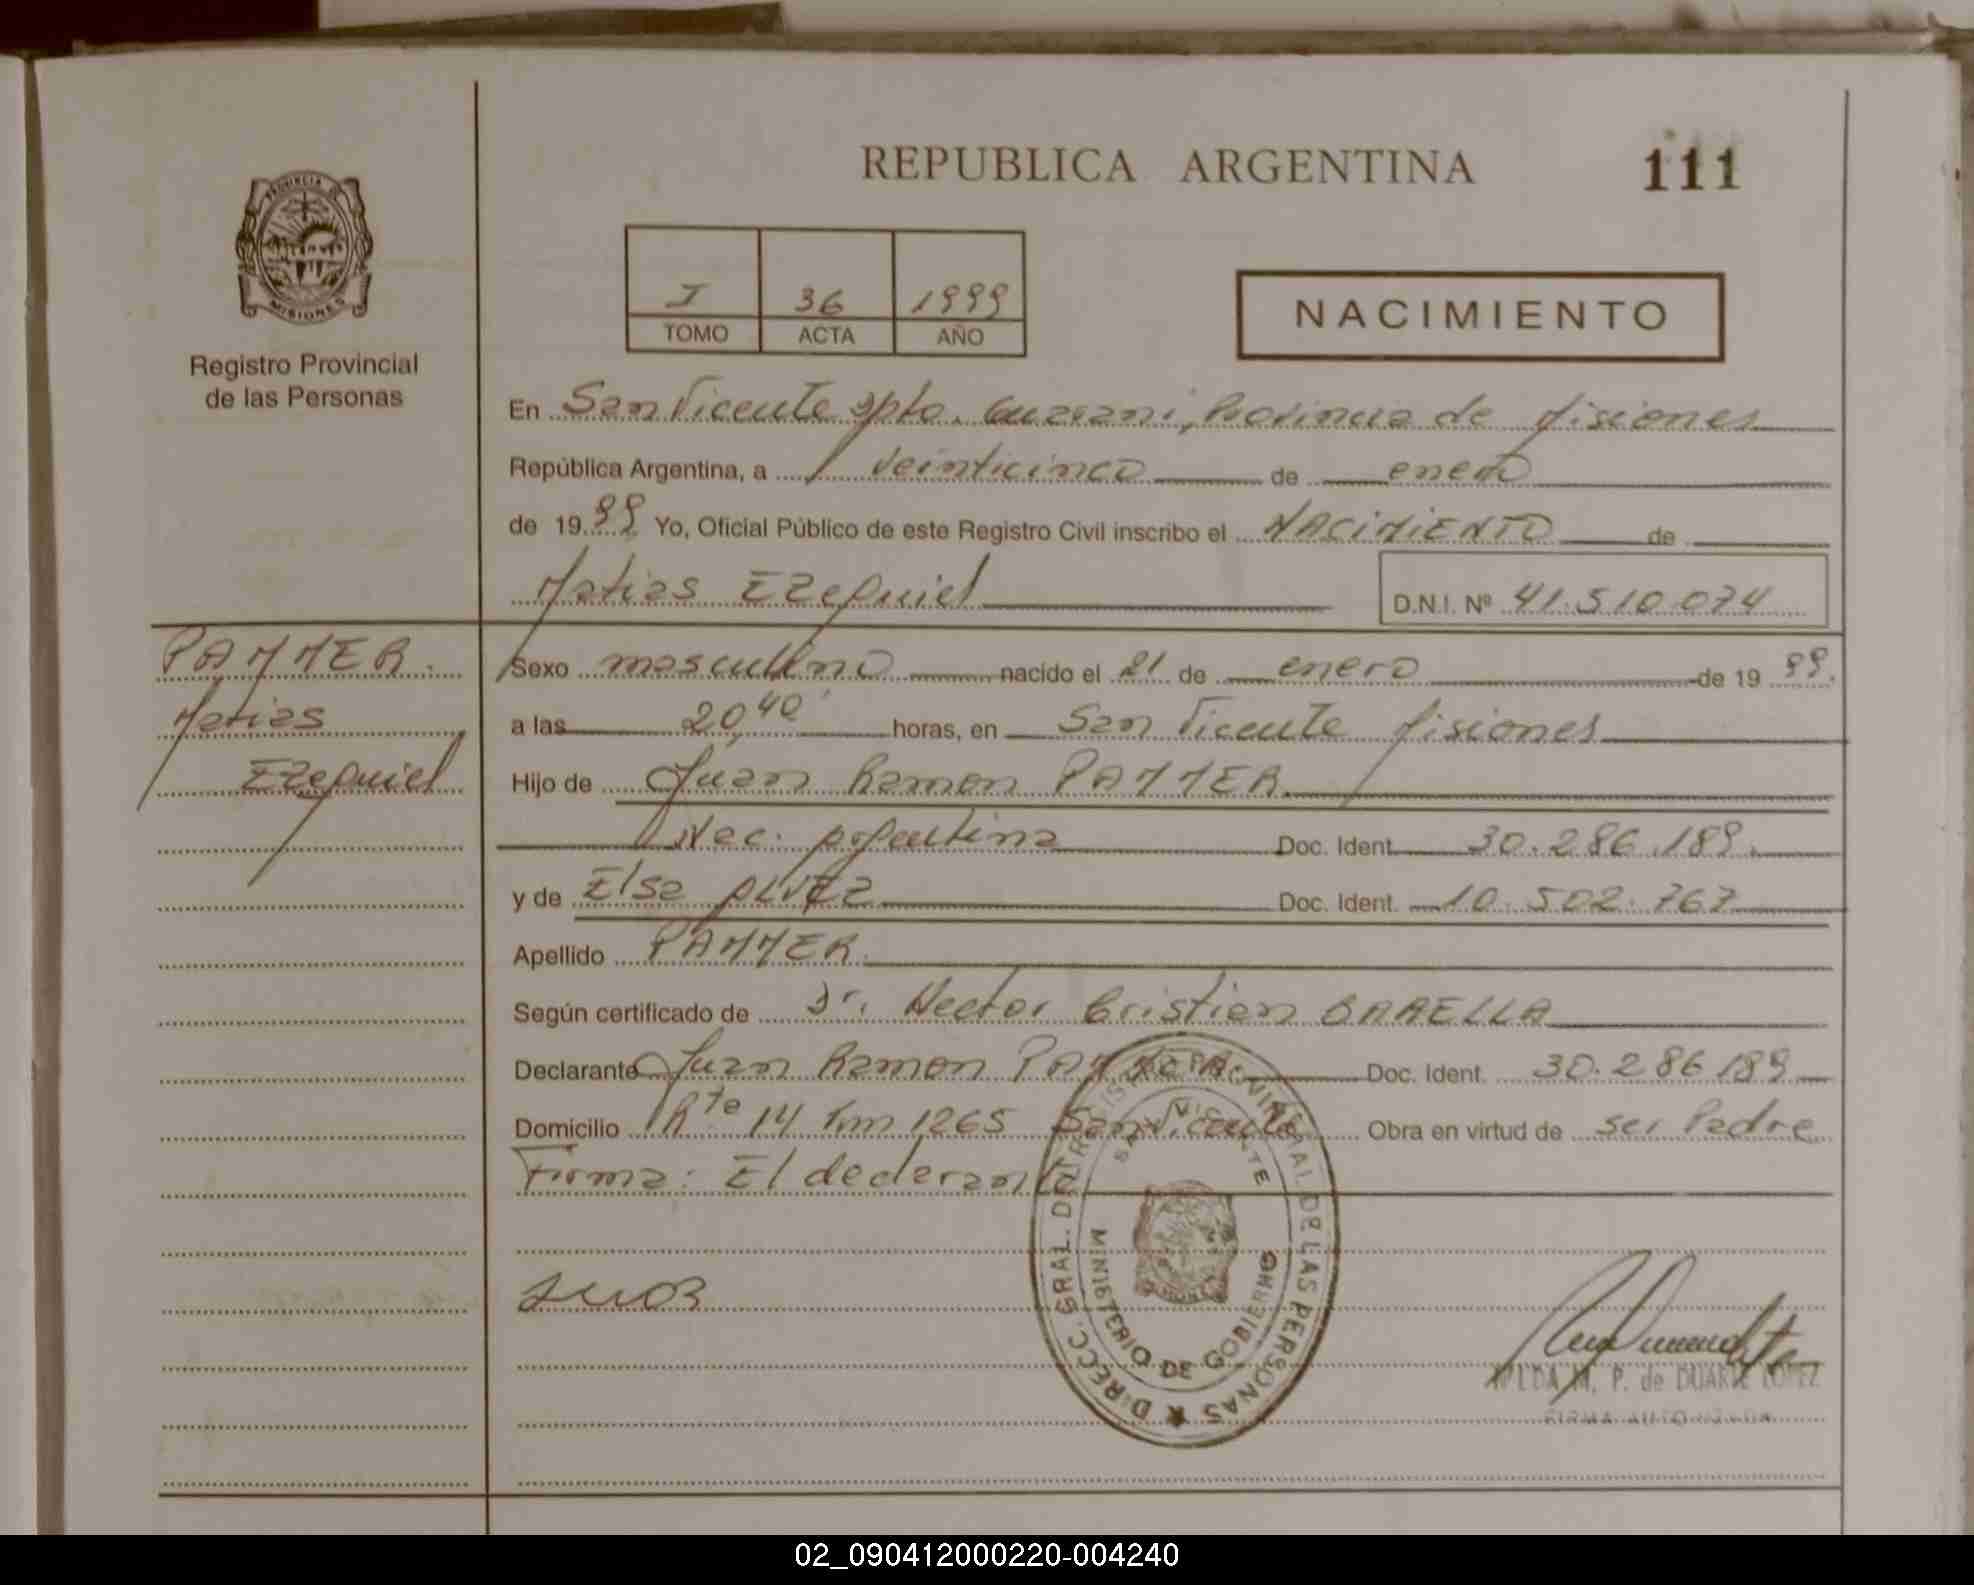 REPUBLICA ARGENTINA
111
PROVINCIA DE
MISIONES
Registro Provincial
de las Personas
I 36 1999
TOMO ACTA AÑO
NACIMIENTO
En San Vicente Dpto. Guarani, Provincia de Misiones
República Argentina, a veinticinco de enero
de 1999 Yo, Oficial Público de este Registro Civil inscribo el NACIMIENTO de
Matias Ezequiel D.N.I. Nº 41.510.074
PAMMER.
Matias
Ezequiel
Sexo masculino nacido el 21 de enero de 1999.
a las 20,40 horas, en San Vicente Misiones
Hijo de Juan Ramon PAMMER
Nac. Argentina Doc. Ident. 30.286.189.
y de Elsa ALVEZ Doc. Ident. 10.502.767
Apellido PAMMER.
Según certificado de Dr. Hector Cristian BARELLA
Declarante Juan Ramon PAMMER. Doc. Ident. 30.286.189
Domicilio Rte 14 Km 1265 San Vicente Obra en virtud de ser Padre
Firma: El declarante
DIRECC. GRAL. DEL REGISTRO PROVINCIAL DE LAS PERSONAS
SAN VICENTE
MINISTERIO DE GOBIERNO
M. P. de DUARTE LOPEZ
FIRMA AUTORIZADA
02_090412000220-004240